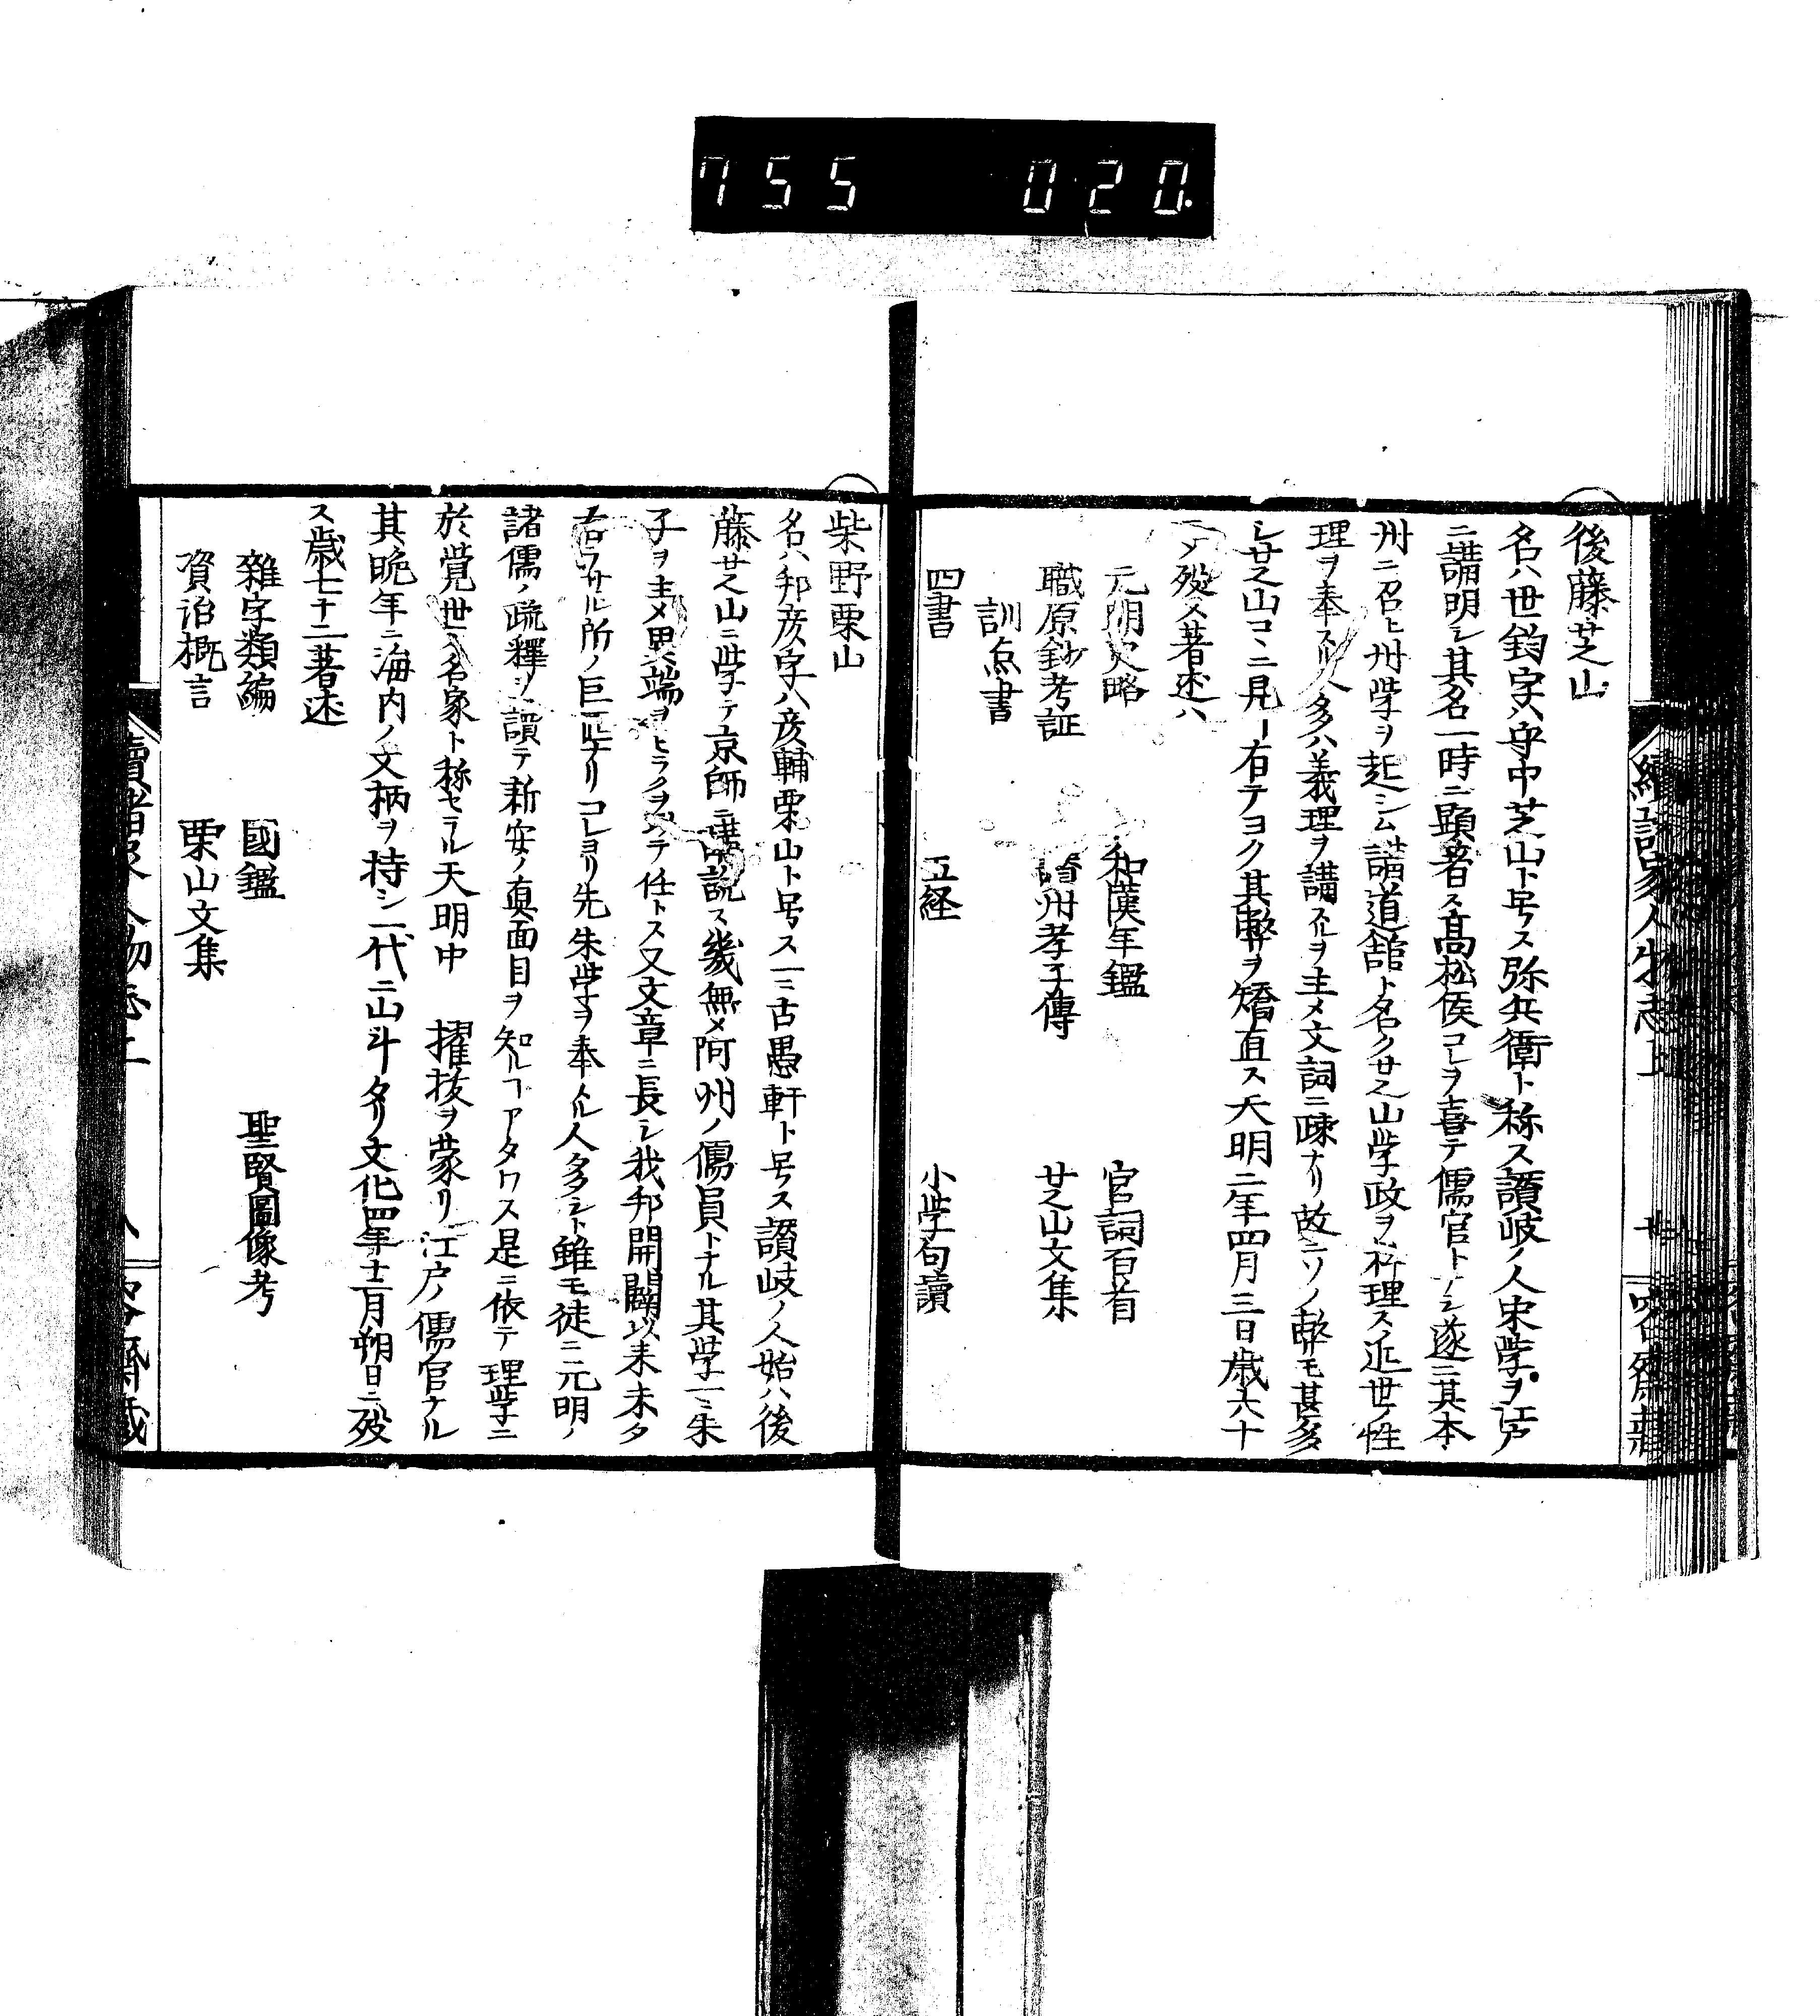 755 020.
後藤芝山
名ハ世鈞字ハ守中芝山ト号ス弥兵衛ト称ス讃岐ノ人宋学ヲ江戸
ニ講明シ其名一時ニ顕著ス高松侯コレヲ喜テ儒官トナシ遂ニ其本
州ニ召ヒ州学ヲ起シム講道舘ト名ク芝山学政ヲ析理ス近世ノ性
理ヲ奉スル人多ハ義理ヲ講スルヲ主メ文詞ニ疎ナリ故ニソノ弊モ甚多
シ芝山コヽニ見ー右テヨク其弊ヲ矯直ス天明二年四月三日歳六十
ニテ歿ス著述ハ
元明史略 和漢年鑑 官詞百首
職原鈔考証 讃州孝子傳 芝山文集
訓点書
四書 五経 小学句讀
柴野栗山
名ハ邦彦字ハ彦輔栗山ト号ス一ニ古愚軒ト号ス讃岐ノ人始ハ後
藤芝山ニ学テ京師ニ講説ス幾無メ阿州ノ儒員トナル其学一ニ朱
子ヲ主メ異端ヲヒラクヲ以テ任トス又文章ニ長シ我邦開闢以来未タ
右ラサル所ノ巨匠ナリコレヨリ先朱学ヲ奉スル人多シト雖モ徒ニ元明ノ
諸儒ノ疏釋ヲ讀テ新安ノ眞面目ヲ知ルコアタワス是ニ依テ理学ニ
於覚世ノ名家ト称セラル天明中 擢抜ヲ蒙リ江戸ノ儒官ナル
其晩年ニ海内ノ文柄ヲ持シ一代ニ山斗タリ文化四年十二月朔日ニ歿
ス歳七十二著述
雜字類編 國鑑 聖賢圖像考
資治概言 栗山文集